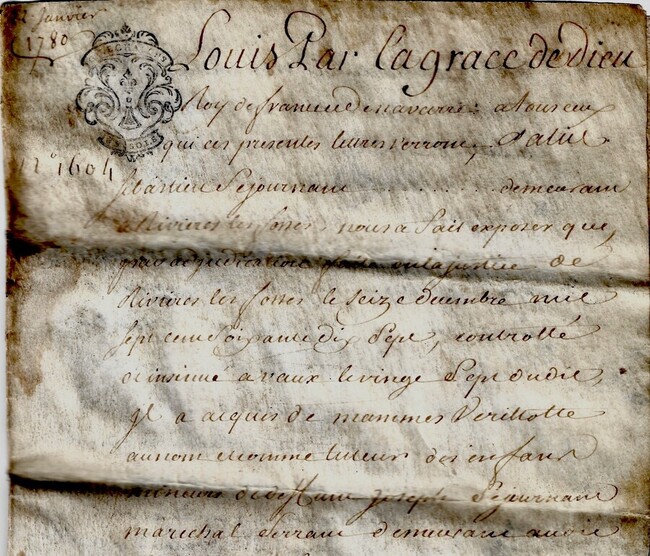 Janvier
1780
Louis Par la grace de Dieu
Roy de france et de navarre : a tous ceux
qui ces presentes lettres verront, Salut
n° 1604
Sejournant demeurant
a Rivieres les fosses nous a fait exposer que
par adjudication faite en la justice de
Rivieres les fosses le seize decembre mil
sept cent soixante dix sept, controllé
et insinué a vaux le vingt sept dudit,
Il a acquis de mammes Verillotte
au nom et comme tuteur des enfans
mineurs de deffunt Joseph Sejournant
marechal ferrant demeurant audit